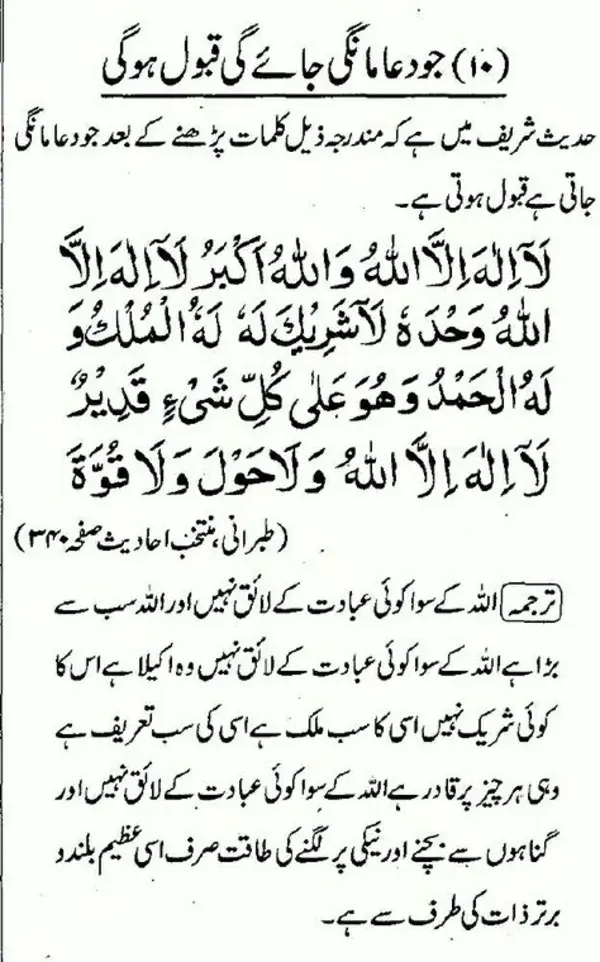 (۱۰) جو دعا مانگی جائے گی قبول ہوگی
حدیث شریف میں ہے کہ مندرجہ ذیل کلمات پڑھنے کے بعد جو دعا مانگی
جاتی ہے قبول ہوتی ہے۔
لَآ اِلٰهَ اِلَّا اللهُ وَاللهُ اَكْبَرُ لَآ اِلٰهَ اِلَّا
اللهُ وَحْدَهٗ لَآ شَرِيْكَ لَهٗ لَهُ الْمُلْكُ وَ
لَهُ الْحَمْدُ وَهُوَ عَلٰى كُلِّ شَىْءٍ قَدِيْرٌ
لَآ اِلٰهَ اِلَّا اللهُ وَلَا حَوْلَ وَلَا قُوَّةَ
(طبرانی، منتخب احادیث صفحہ ۳۴۰)
ترجمہ اللہ کے سوا کوئی عبادت کے لائق نہیں اور اللہ سب سے
بڑا ہے اللہ کے سوا کوئی عبادت کے لائق نہیں وہ اکیلا ہے اس کا
کوئی شریک نہیں اسی کا سب ملک ہے اسی کی سب تعریف ہے
وہی ہر چیز پر قادر ہے اللہ کے سوا کوئی عبادت کے لائق نہیں اور
گناہوں سے بچنے اور نیکی پر لگنے کی طاقت صرف اسی عظیم بلند و
برتر ذات کی طرف سے ہے۔